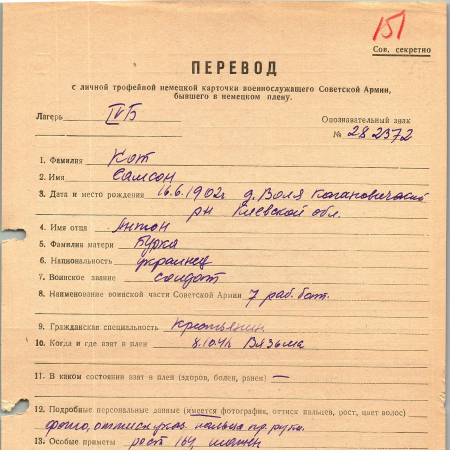 151
Сов. секретно
ПЕРЕВОД
с личной трофейной немецкой карточки военнослужащего Советской Армии,
бывшего в немецком плену.
Лагерь IVБ
Опознавательный знак
№ 282372
1. Фамилия Кот
2. Имя Самсон
3. Дата и место рождения 16.6.1902г д. Воля Кагановический
рн Киевской обл.
4. Имя отца Антон
5. Фамилия матери Бурка
6. Национальность украинец
7. Воинское звание солдат
8. Наименование воинской части Советской Армии 7 раб. бат.
9. Гражданская специальность Крестьянин
10. Когда и где взят в плен 8.10.41г Вязьма
11. В каком состоянии взят в плен (здоров, болен, ранен) —
12. Подробные персональные данные (имеется фотография, оттиск пальцев, рост, цвет волос)
фото, оттиск указ пальца пр. руки.
13. Особые приметы рост 164,